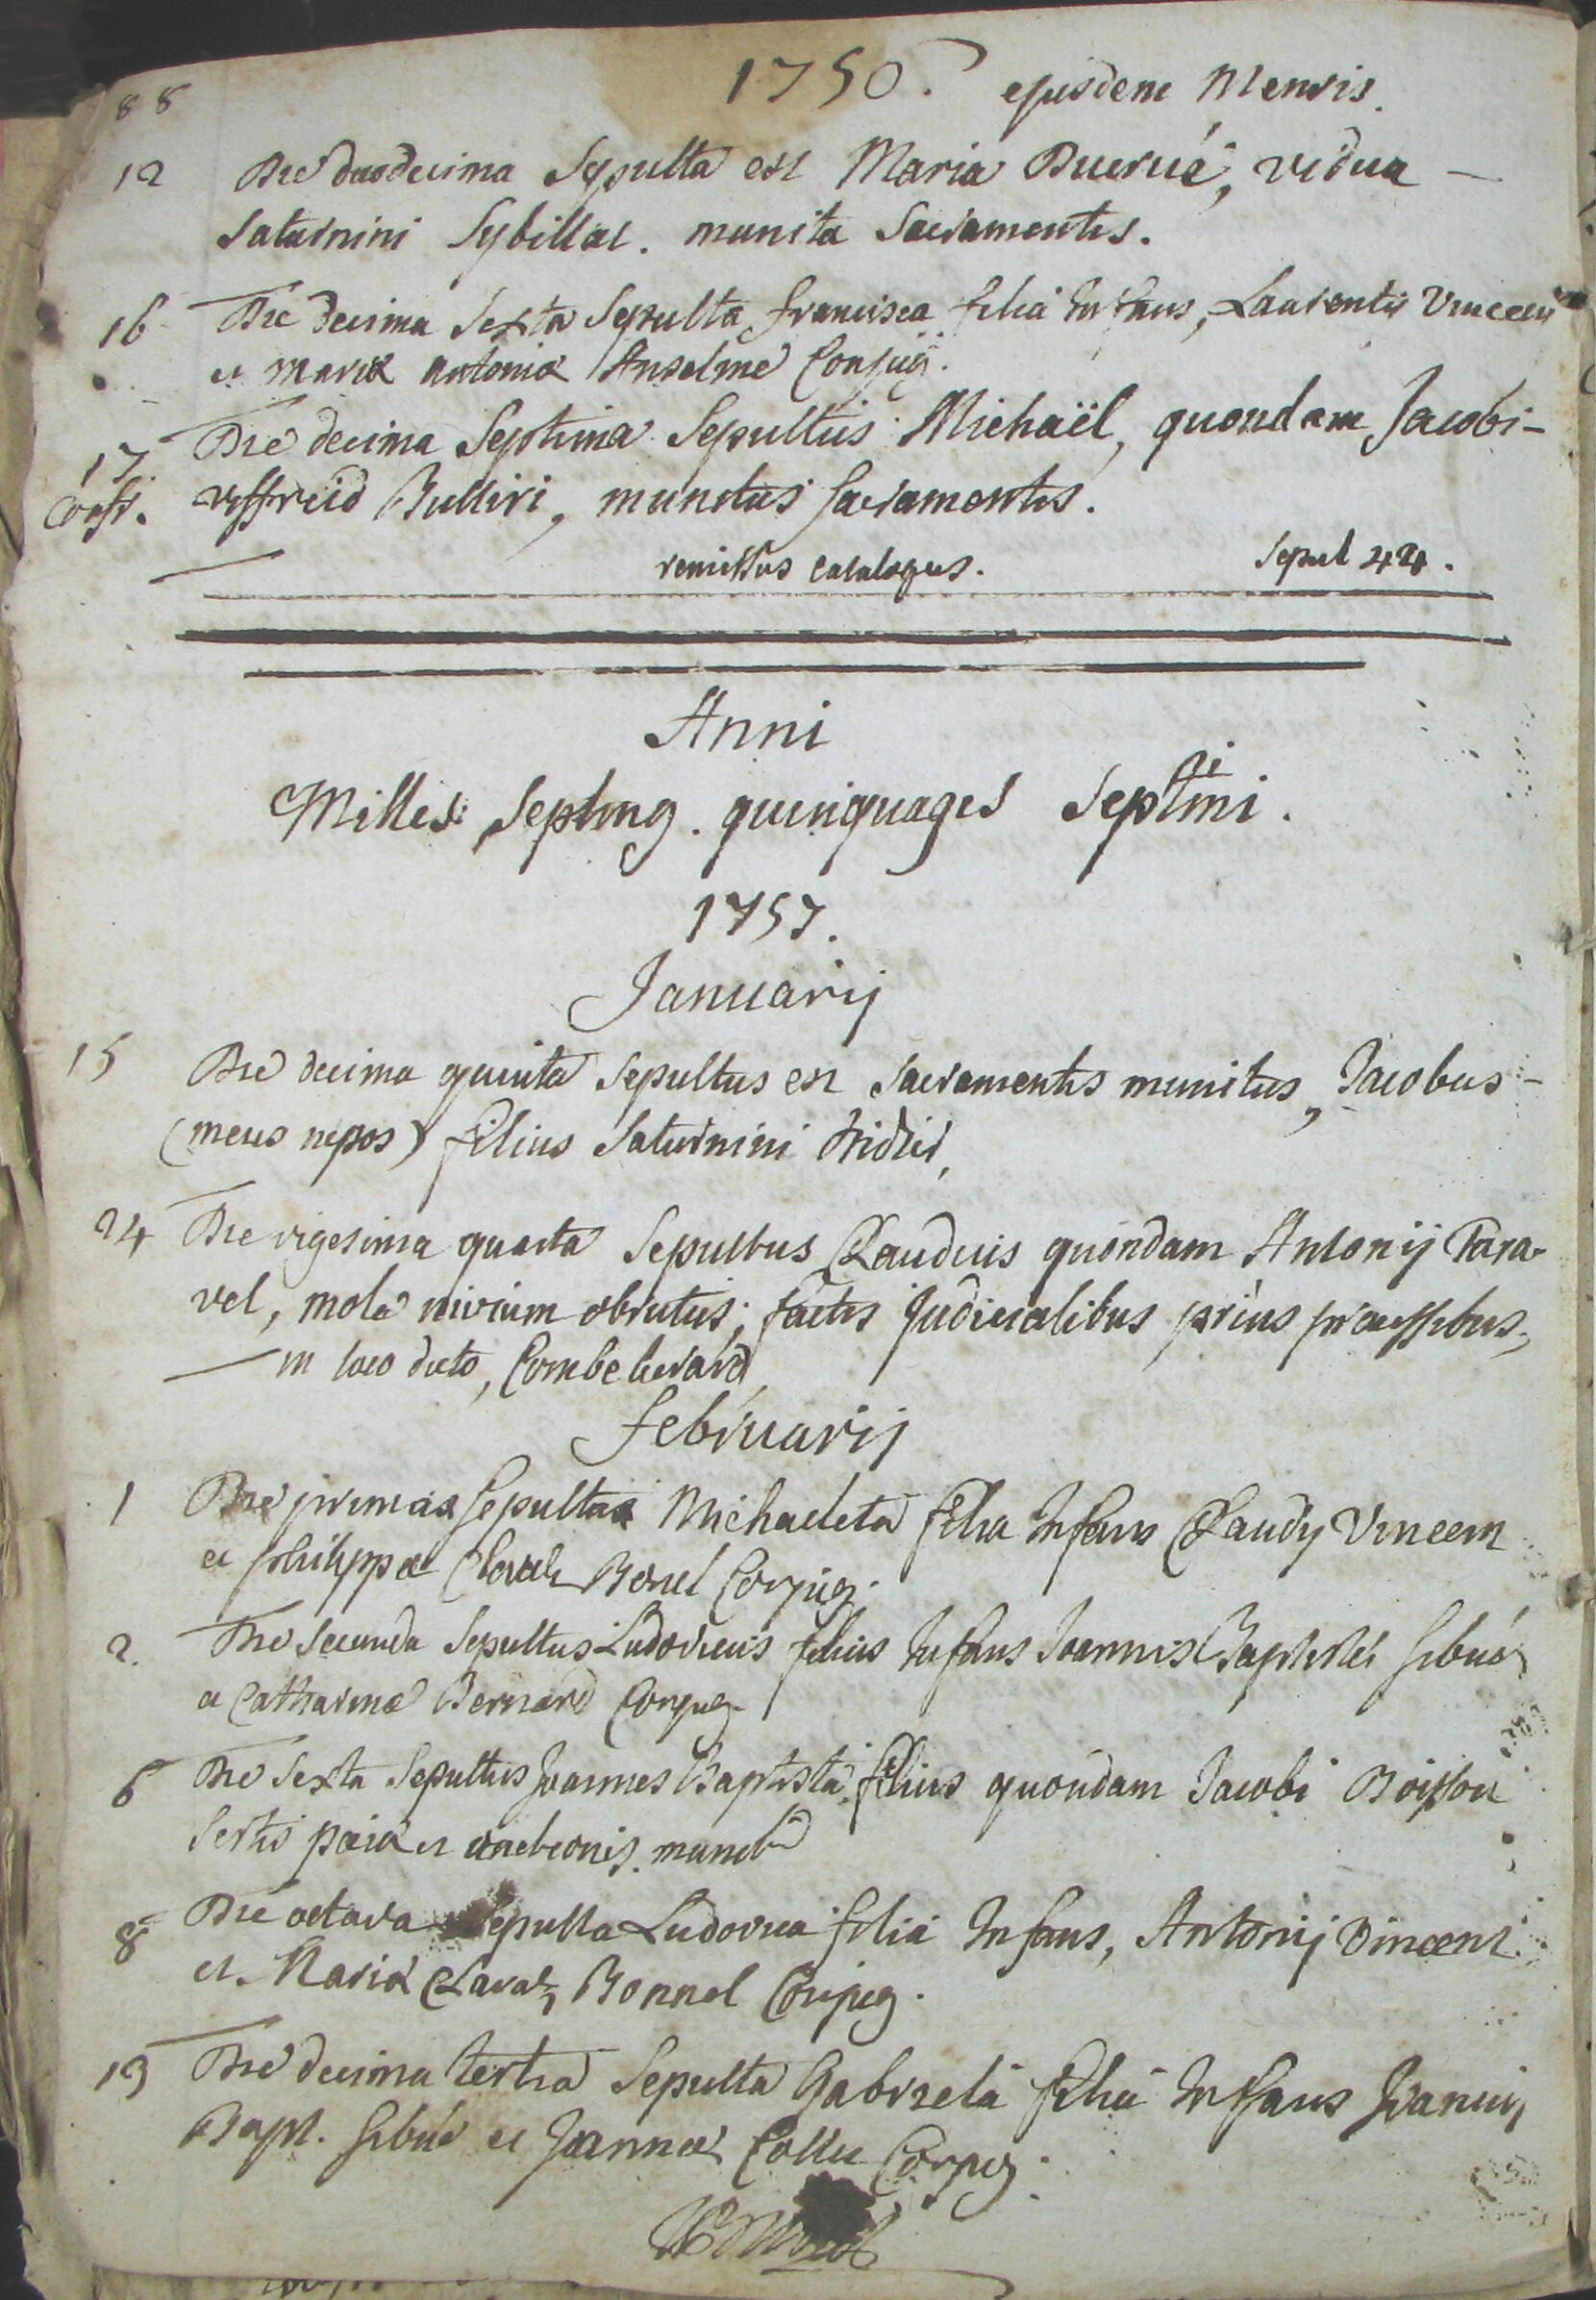 88
1756. ejusdem Mensis.
12 Die duodecima Sepulta est Maria Ducrué, vidua –
Saturnini Sybillae. munita Sacramentis.
16 Die decima Sexta Sepulta francisca filia Infans, Laurentii Vincent
et mariæ antoniæ Anselme Conjug.
17 Die decima Septima Sepultus Michaël, quondam Jacobi –
Confr. Bulliri, munitus Sacramentis.
remissus catalogus. Sepul 44.
Anni
Milles. Septing. quinquages Septimi.
1757.
Januarij
15 Die decima quinta Sepultus est Sacramentis munitus, Jacobus –
(meus nepos) filius Saturnini
24 Die vigesima quarta Sepultus Claudius quondam Antonij Para-
vel, mole nivium obrutus; factis Judicialibus prius processibus,
in loco dicto, Combe
februarij
1 Die prima Sepulta Michaeleta filia Infans Claudij Vincent
et philippæ Claræ Borrel Conjug.
2. Die Secunda Sepultus Ludovicus filius Infans Joannis Baptistæ Sibué
et Catharinæ Bernard Conjug.
6 Die Sexta Sepultus Joannes Baptista filius quondam Jacobi Boisson
8 Die octava Sepulta Ludovica filia Infans, Antonij Vincent
et Mariæ Claræ Bonnel Conjug.
13 Die decima tertia Sepulta Gabriela filia Infans Joannis
Bapt. Sibué et Joannæ Collet Conjug.